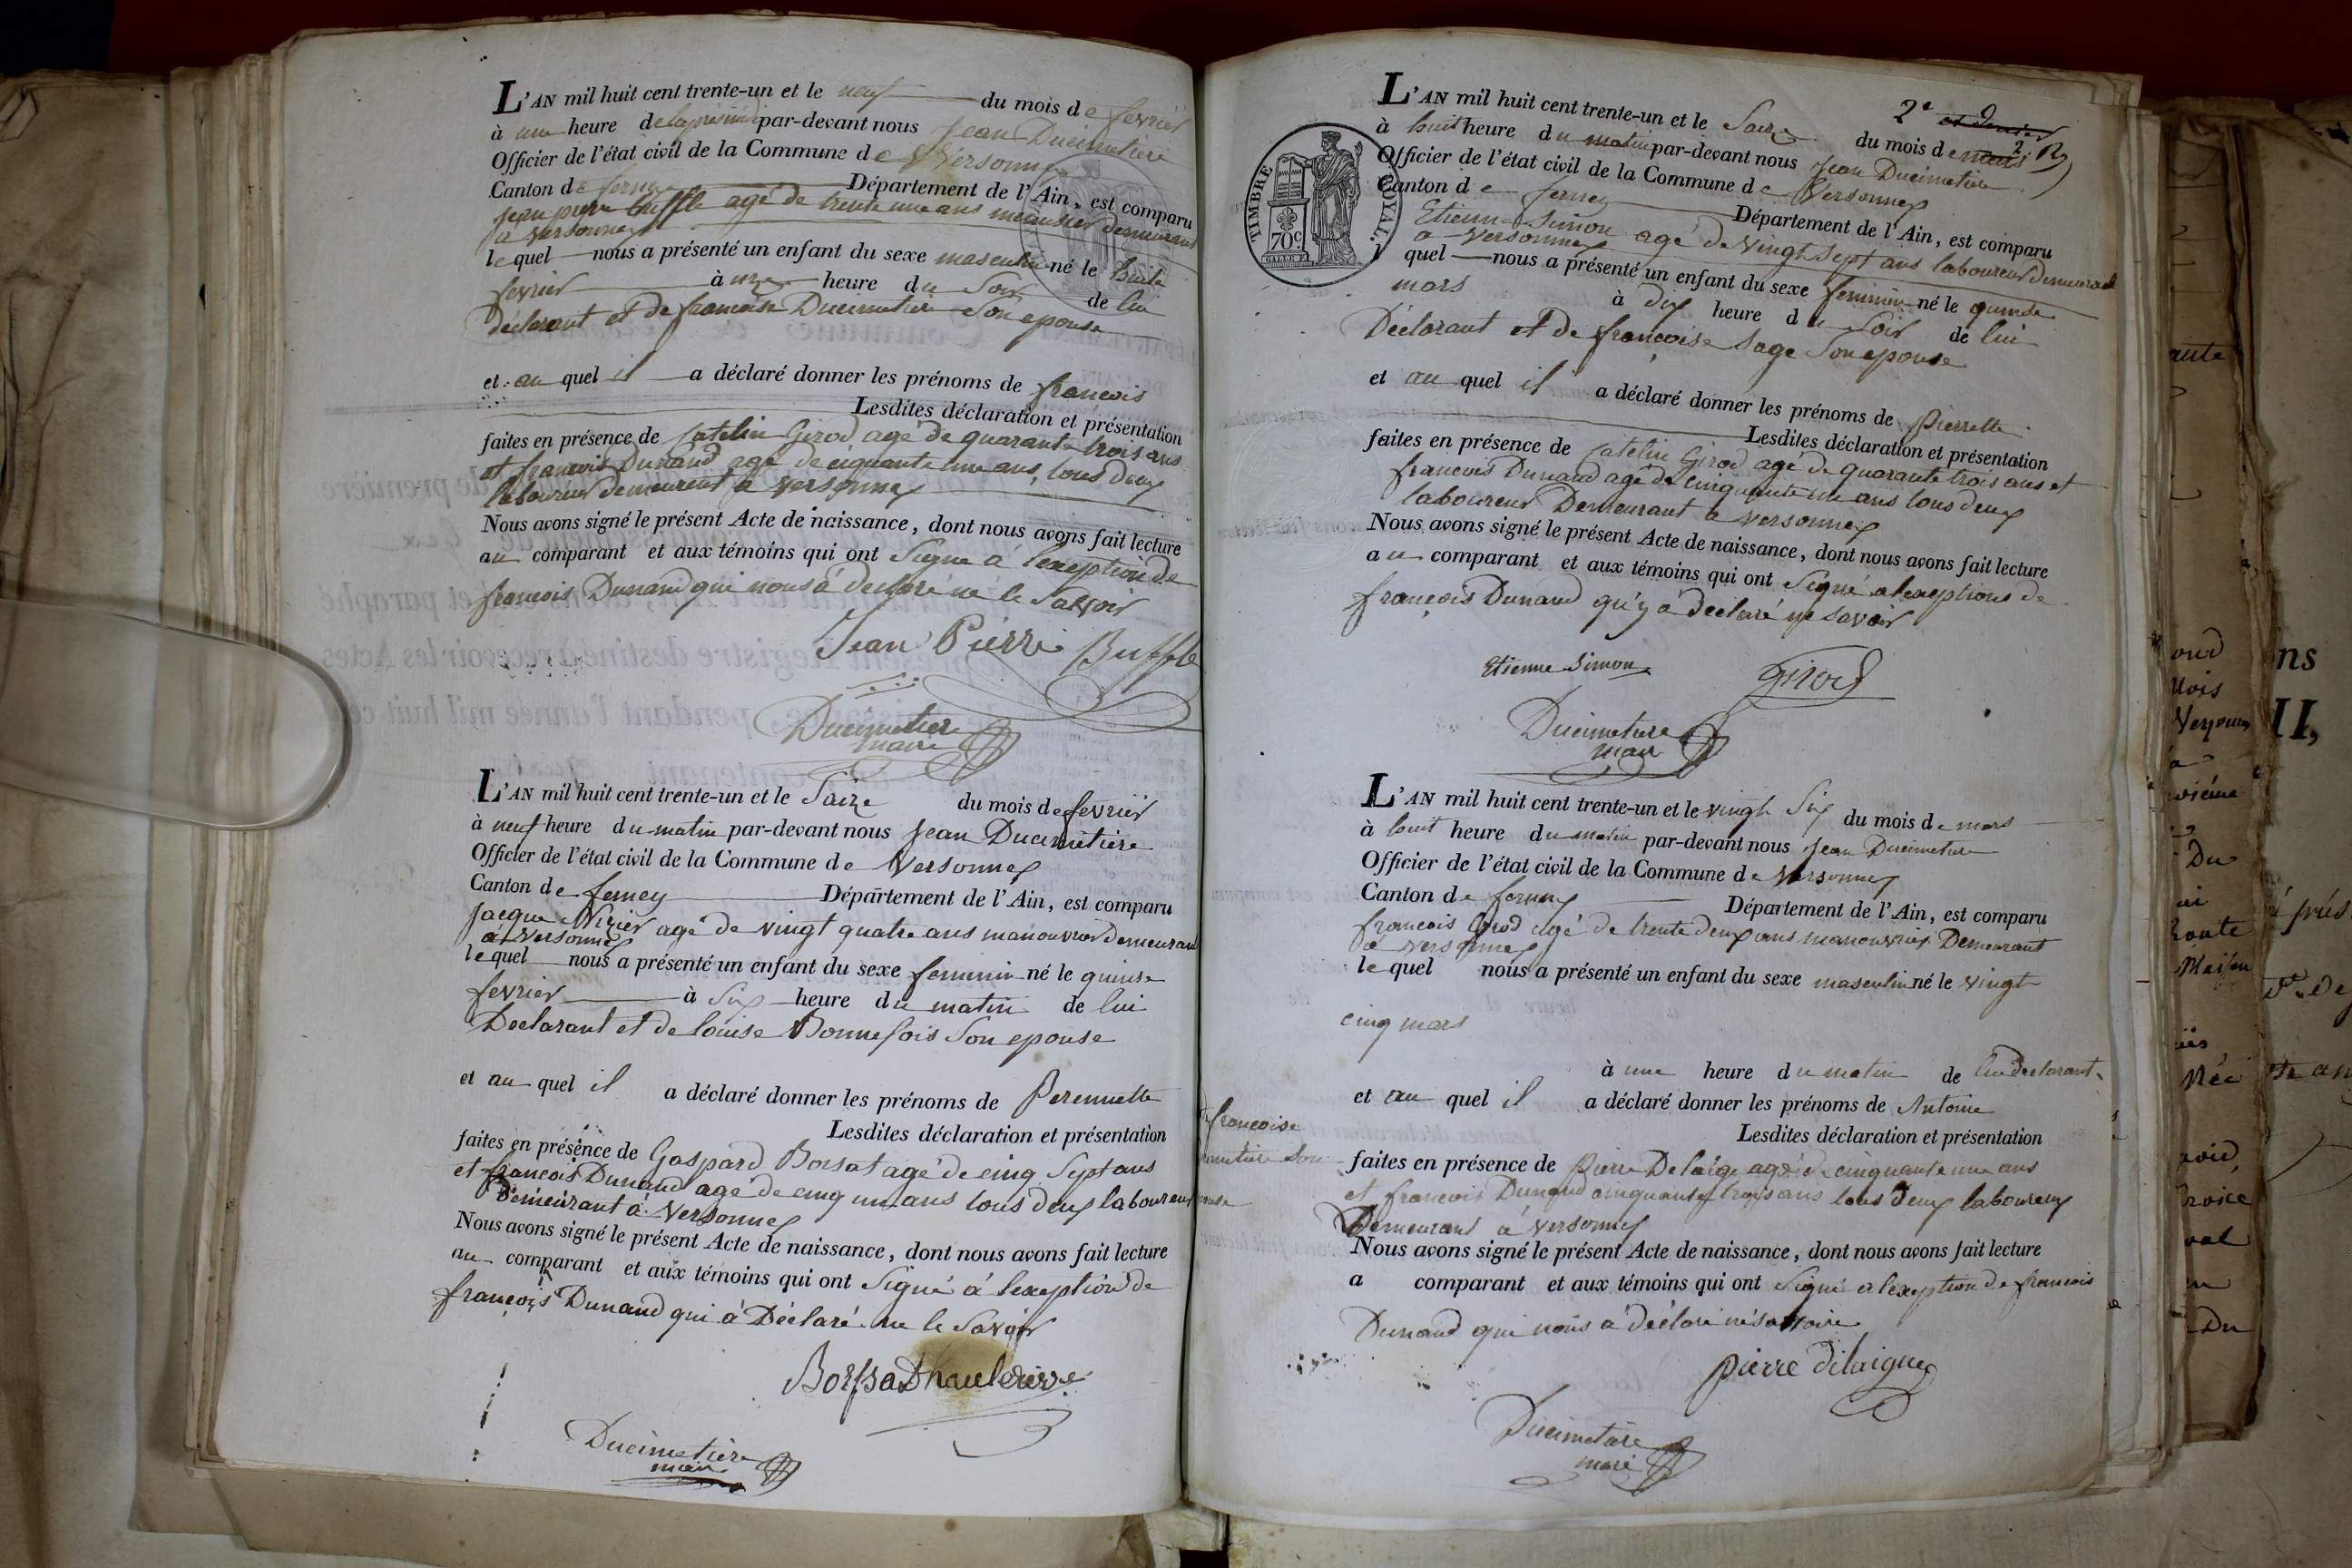 L'AN mil huit cent trente-un et le neuf du mois de fevrier
à une heure de par-devant nous Jean Ducimetiere
Officier de l'état civil de la Commune de Versonnex
Canton de ferney Département de l'Ain, est comparu
jean pierre buffle agé de trente une ans menusier demeurant
a Versonnex
lequel nous a présenté un enfant du sexe masculin né le huit
fevrier à heure du Soir de lui
déclarant et de francoise Ducimetiere Son epouse
et au quel il a déclaré donner les prénoms de francois
Lesdites déclaration et présentation
faites en présence de Girod agé de quarante trois ans
et francois Dunand agé de ciquante une ans, tous deux
laboureur demeurent a versonnex
Nous avons signé le présent Acte de naissance, dont nous avons fait lecture
au comparant et aux témoins qui ont Signe à l'exeption de
francois Dunand qui nous à declaré ne le Savoir
Jean Pierre Buffle
Ducimetiere
maire
L'AN mil huit cent trente-un et le Saize du mois de fevrier
à neuf heure du matin par-devant nous Jean Ducimetiere
Officier de l'état civil de la Commune de Versonnex
Canton de ferney Département de l'Ain, est comparu
Jacque Nizier agé de vingt quatre ans manouvrier demeurant
à Versonnex
lequel nous a présenté un enfant du sexe feminin né le quinse
fevrier à Six heure du matin de lui
Declarant et de louise Bonnefois Son epouse
et au quel il a déclaré donner les prénoms de Perennette
Lesdites déclaration et présentation
faites en présence de Gaspard Borsat agé de cinq Sept ans
et francois Dunand agé de cinq un ans tous deux laboureux
Demeurant à Versonnex
Nous avons signé le présent Acte de naissance, dont nous avons fait lecture
au comparant et aux témoins qui ont Signé à l'exeption de
françois Dunand qui à Déclaré ne le Savoir
Ducimetiere
maire
2e et dernier
2. R
L'AN mil huit cent trente-un et le Saize du mois de mars
à huit heure du matin par-devant nous Jean Ducimetiere
Officier de l'état civil de la Commune de Versonnex
Canton de ferney Département de l'Ain, est comparu
TIMBRE ROYAL.
70c
Etienne Simon agé de vingt Sept ans laboureur demeurant
a Versonnex
l quel nous a présenté un enfant du sexe feminin né le quinse
mars à dix heure du Soir de lui
Déclarant et de françoise Sage Son epouse
et au quel il a déclaré donner les prénoms de pierrette
Lesdites déclaration et présentation
faites en présence de Girod agé de quarante trois ans et
francois Dunand agé de cinquante un ans tous deux
laboureur Demeurant a versonnex
Nous avons signé le présent Acte de naissance, dont nous avons fait lecture
au comparant et aux témoins qui ont Signé a lexeptions de
françois Dunand qu'y à declaré ne savoir
Etienne Simon
girod
Ducimetiere
maire
L'AN mil huit cent trente-un et le vingt Six du mois de mars
à huit heure du matin par-devant nous Jean Ducimetiere
Officier de l'état civil de la Commune de Versonnex
Canton de ferney Département de l'Ain, est comparu
francois Girod agé de trente deux ans manouvrier Demeurant
a versonnex
lequel nous a présenté un enfant du sexe masculin né le vingt
cinq mars
à une heure du matin de lui declarant
et au quel il a déclaré donner les prénoms de Antoine
Lesdites déclaration et présentation
francoise
Son
faites en présence de pierre Delaigue agé de cinquante une ans
et francois Dunand cinquante trois ans tous deux laboureux
Demeurant à versonnex
Nous avons signé le présent Acte de naissance, dont nous avons fait lecture
a comparant et aux témoins qui ont Signé a lexeption de francois
Dunand qui nous à déclaré
pierre delaigue
Ducimetiere
maire